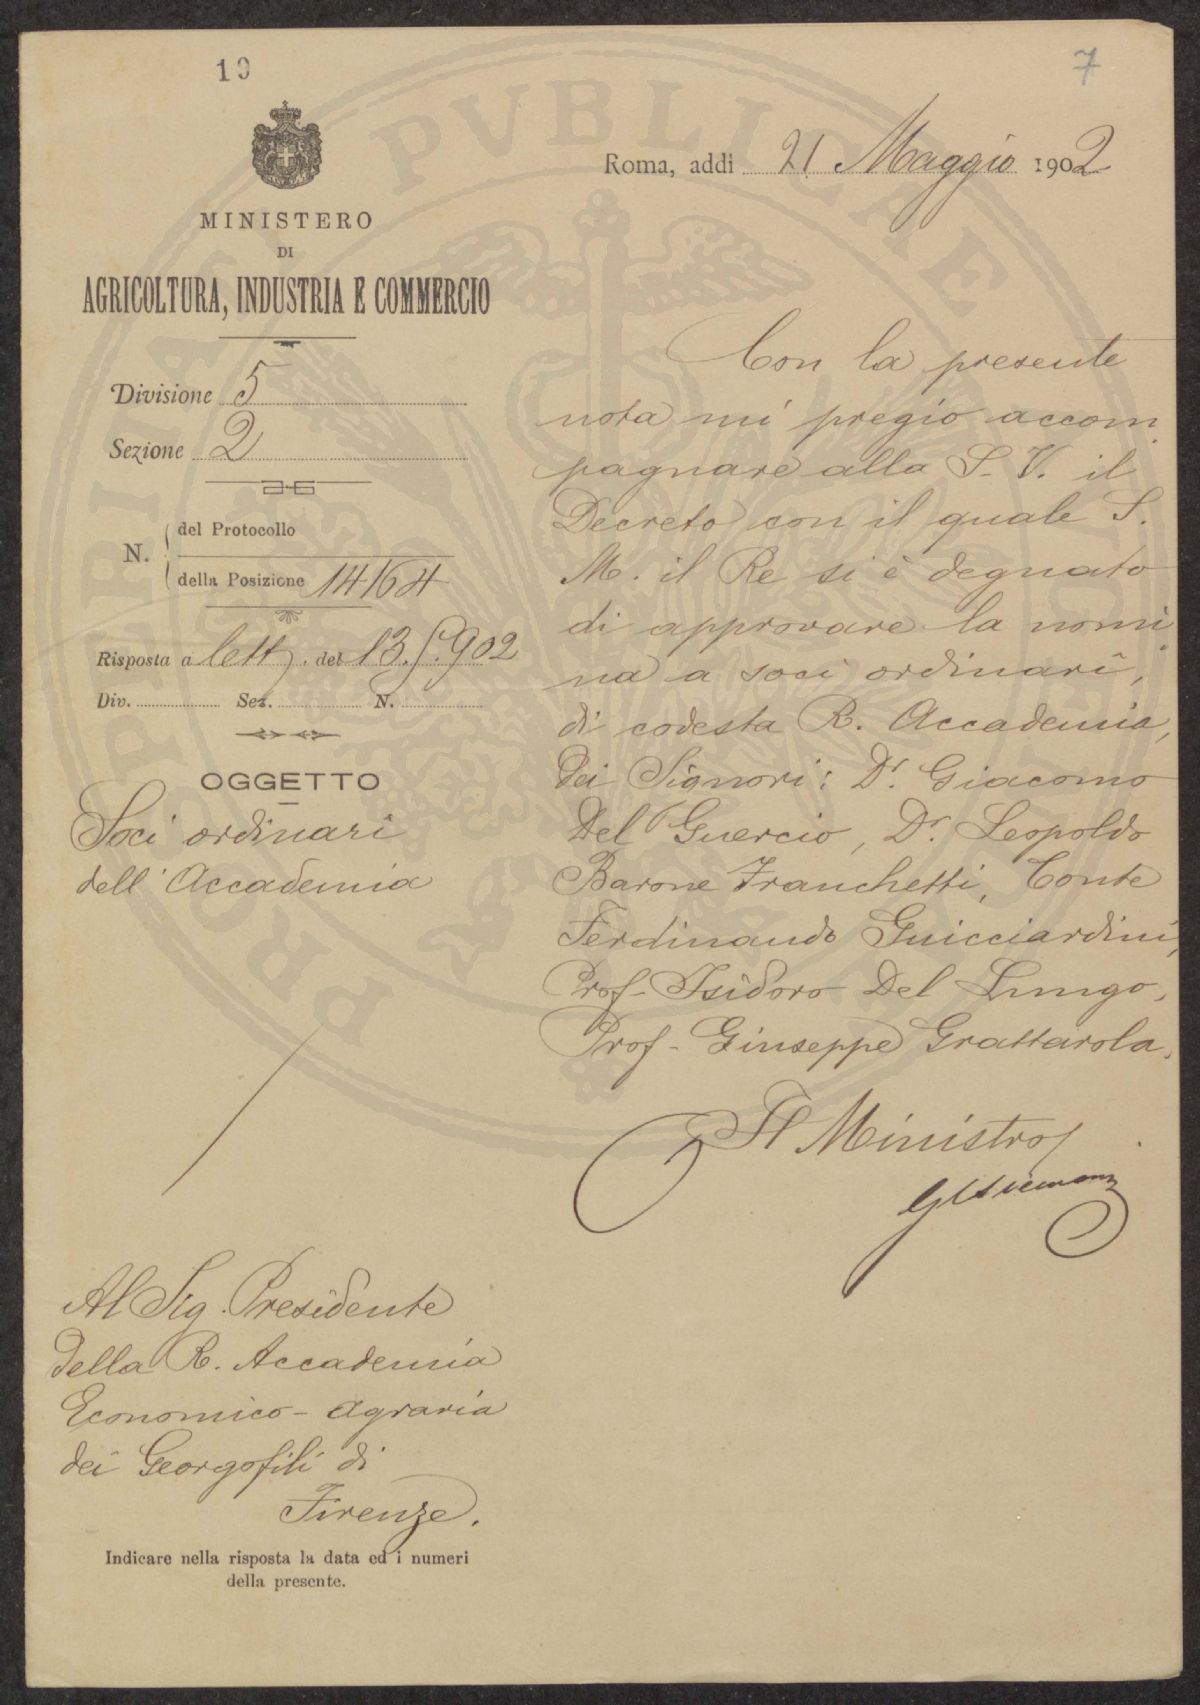 19
7
MINISTERO
DI
AGRICOLTURA, INDUSTRIA E COMMERCIO
Divisione 5
Sezione 2
N.
del Protocollo
della Posizione 14164
Risposta a lett. del 13.5.902
Div. Sez. N.
OGGETTO
Soci ordinari
dell'Accademia
Roma, addi 21 Maggio 1902
Con la presente
nota mi pregio accom
pagnare alla S. V. il
Decreto con il quale S.
M. il Re si è degnato
di approvare la nomi
na a soci ordinari,
di codesta R. Accademia,
dei Signori: Dr. Giacomo
Del Guercio, Dr. Leopoldo
Barone Franchetti, Conte
Ferdinando Guicciardini,
Prof. Isidoro Del Lungo,
Prof. Giuseppe Grattarola.
Il Ministro
Al Sig. Presidente
della R. Accademia
Economico-agraria
dei Georgofili di
Firenze.
Indicare nella risposta la data ed i numeri
della presente.